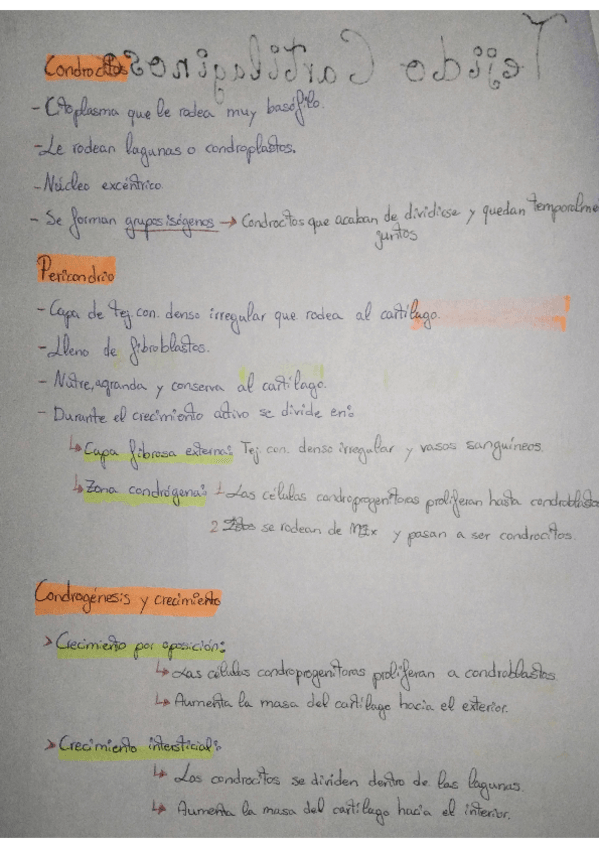 Tejido Cartilaginoso
Condrocitos
- Citoplasma que le rodea muy basófilo.
- Le rodean lagunas o condroplastos.
- Núcleo excéntrico
- Se forman grupos isógenos → Condrocitos que acaban de dividirse y quedan temporalme
juntos
Pericondrio
- Capa de tej. con. denso irregular que rodea al cartílago.
- Lleno de fibroblastos.
- Nutre, agranda y conserva al cartílago.
- Durante el crecimiento activo se divide en:
↳ Capa fibrosa externa: Tej. con. denso irregular y vasos sanguíneos.
↳ Zona condrógena: 1 Las células condroprogenitoras proliferan hasta condroblasto
2 se rodean de MEx y pasan a ser condrocitos.
Condrogénesis y crecimiento
> Crecimiento por oposición:
↳ Las células condroprogenitoras proliferan a condroblastos.
↳ Aumenta la masa del cartílago hacia el exterior.
> Crecimiento intersticial:
↳ Los condrocitos se dividen dentro de las lagunas.
↳ Aumenta la masa del cartílago hacia el interior.